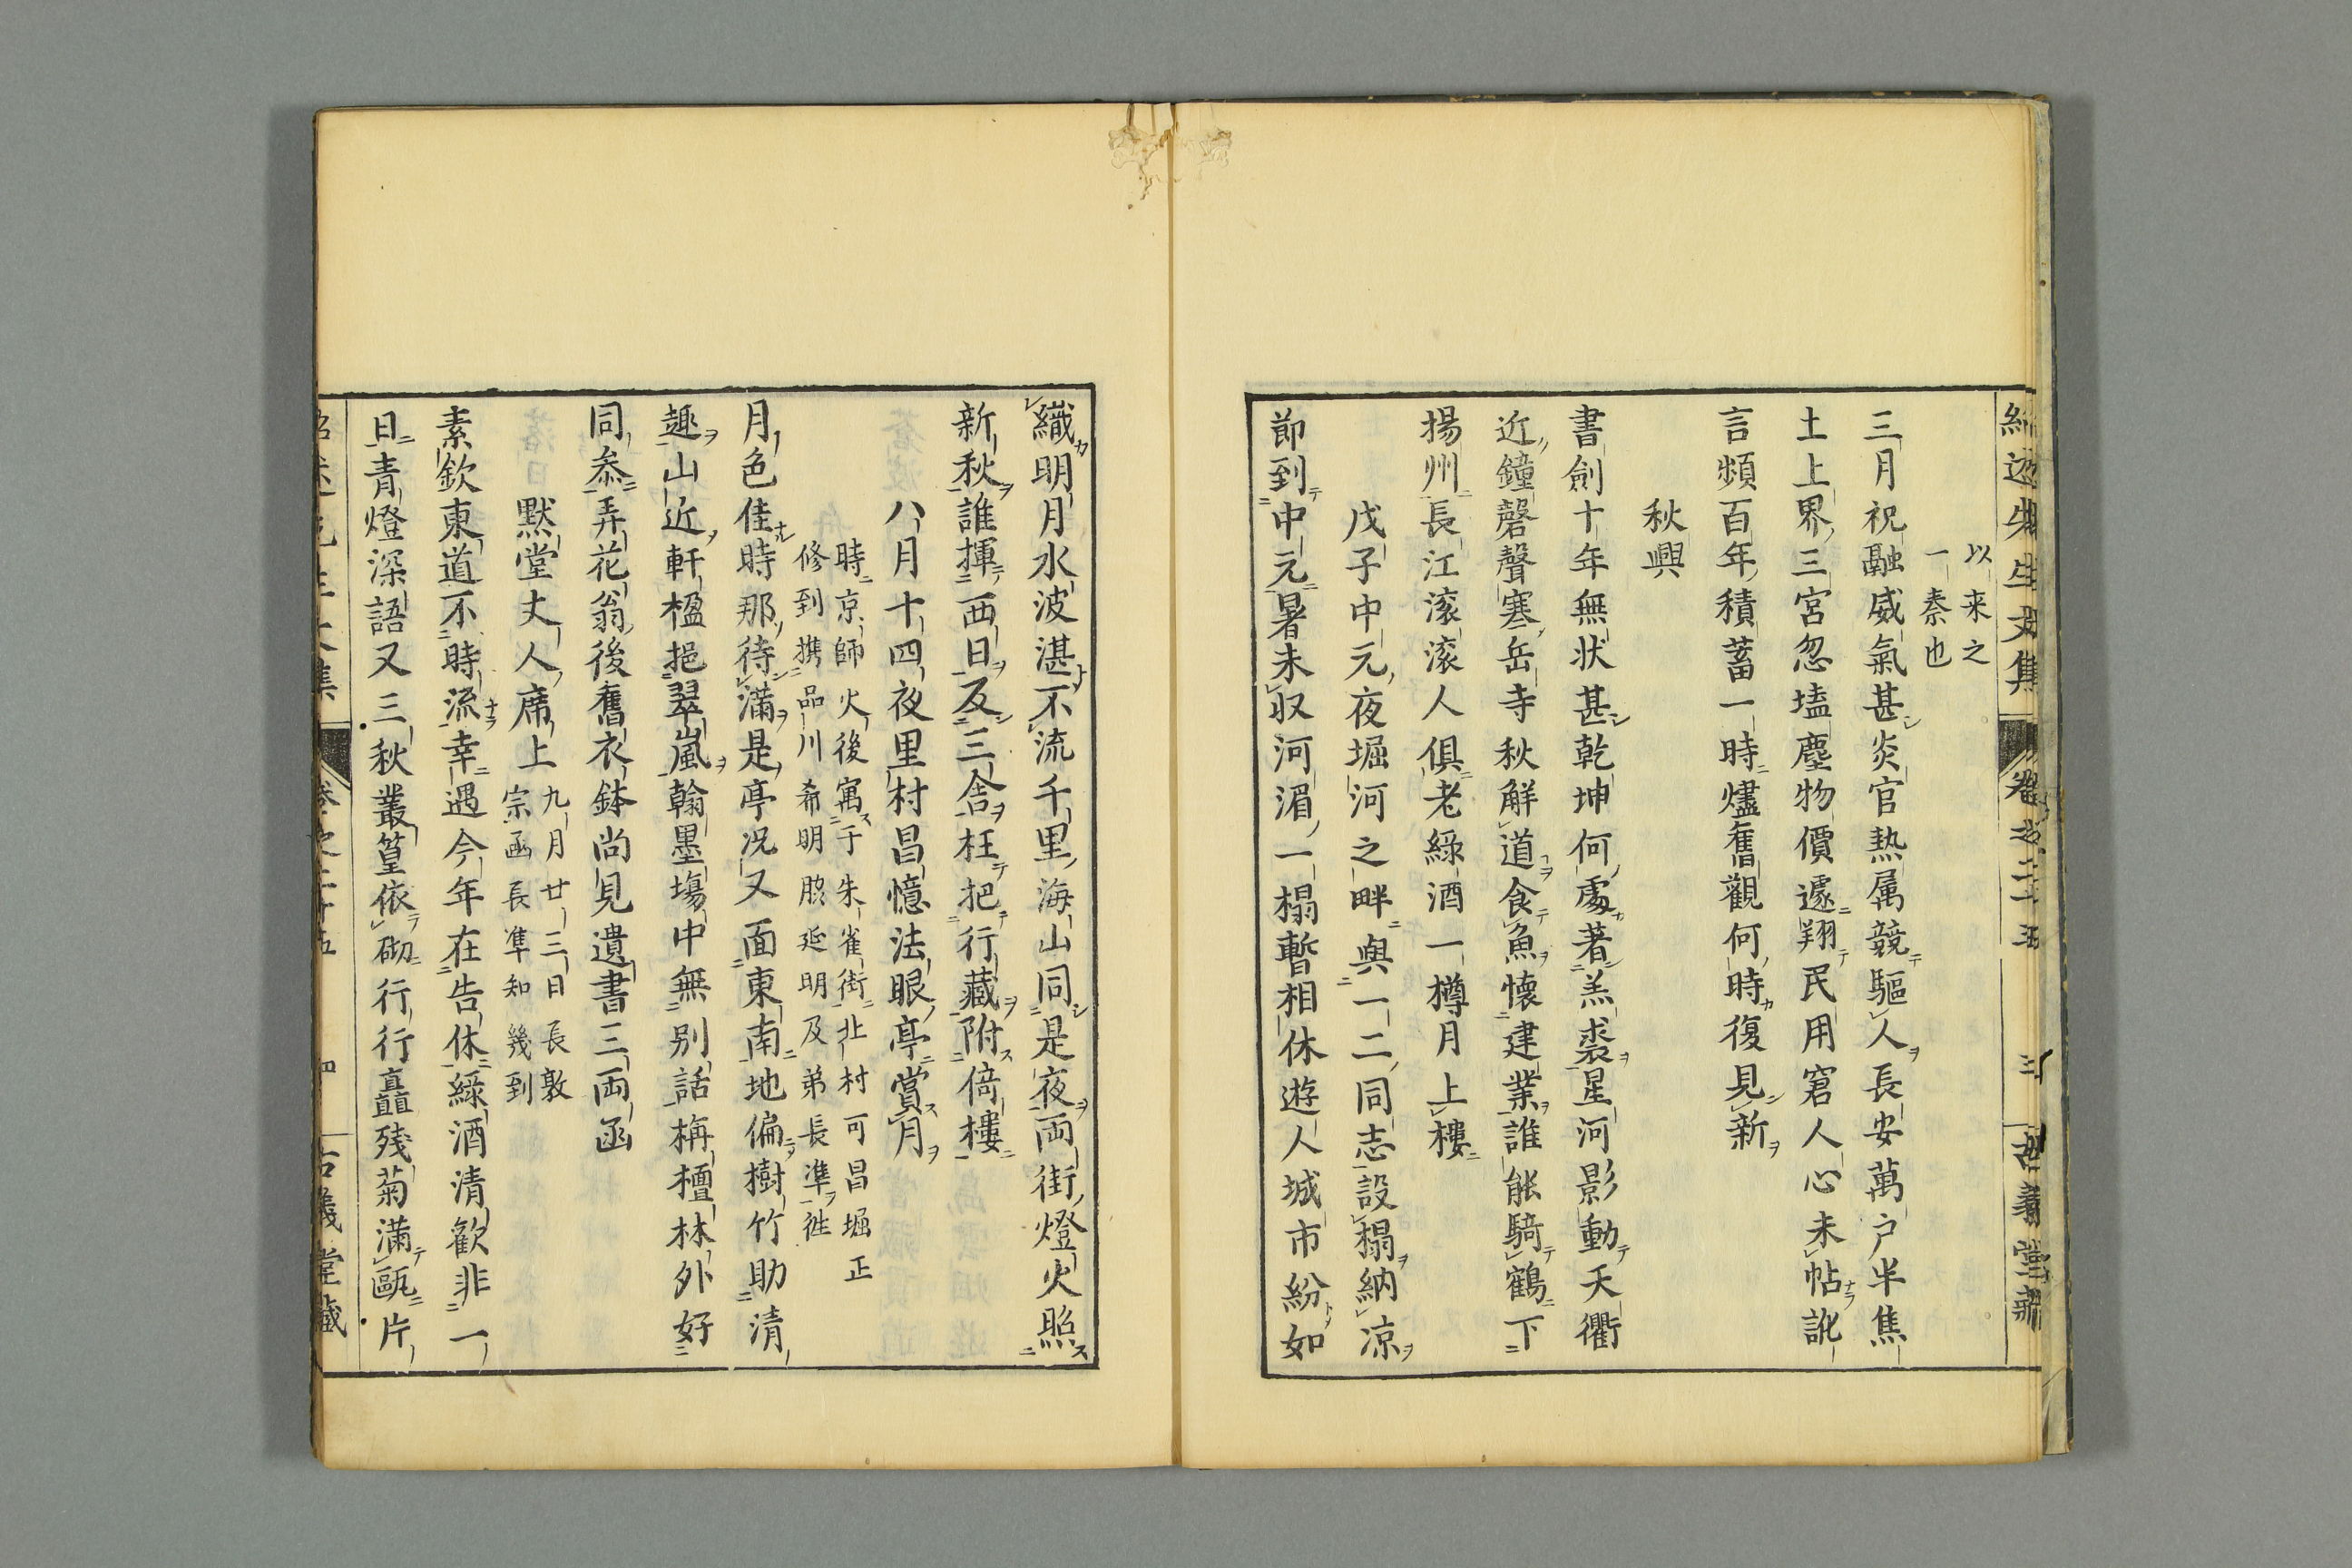 以来之
一秦也
三月祝融威氣甚炎官熱属競驅人長安萬户半焦
土上界三宮忽壒塵物價遽翔民用窘人心未帖訛
言頻百年積蓄一時燼舊觀何時復見新
秋興
書劍十年無状甚乾坤何處著羔裘星河影動天衢
近鐘磬聲寒岳寺秋解道食魚懷建業誰能騎鶴下
揚州長江滚滚人俱老綠酒一樽月上樓
戊子中元夜堀河之畔與一二同志設榻納凉
節到中元暑未収河湄一榻暫相休遊人城市紛如
織明月水波湛不流千里海山同是夜両街燈火照
新秋誰揮西日反三舎枉把行藏附倚樓
八月十四夜里村昌憶法眼亭賞月
時京師火後寓于朱雀街北村可昌堀正
修到携品川希明脵延明及弟長準徃
月色佳時那待滿是亭况又面東南地偏樹竹助清
趣山近軒楹挹翠嵐翰墨場中無别話梅檀林外好
同叅弄花翁後舊衣鉢尚見遺書三両函
默堂丈人席上
九月廿三日長敦
宗函長準知幾到
素欽東道不時流幸遇今年在告休綠酒清歡非一
日青燈深語又三秋叢篁依砌行行矗殘菊滿甌片
紹述先生文集
卷之二十五
三
古義堂藏